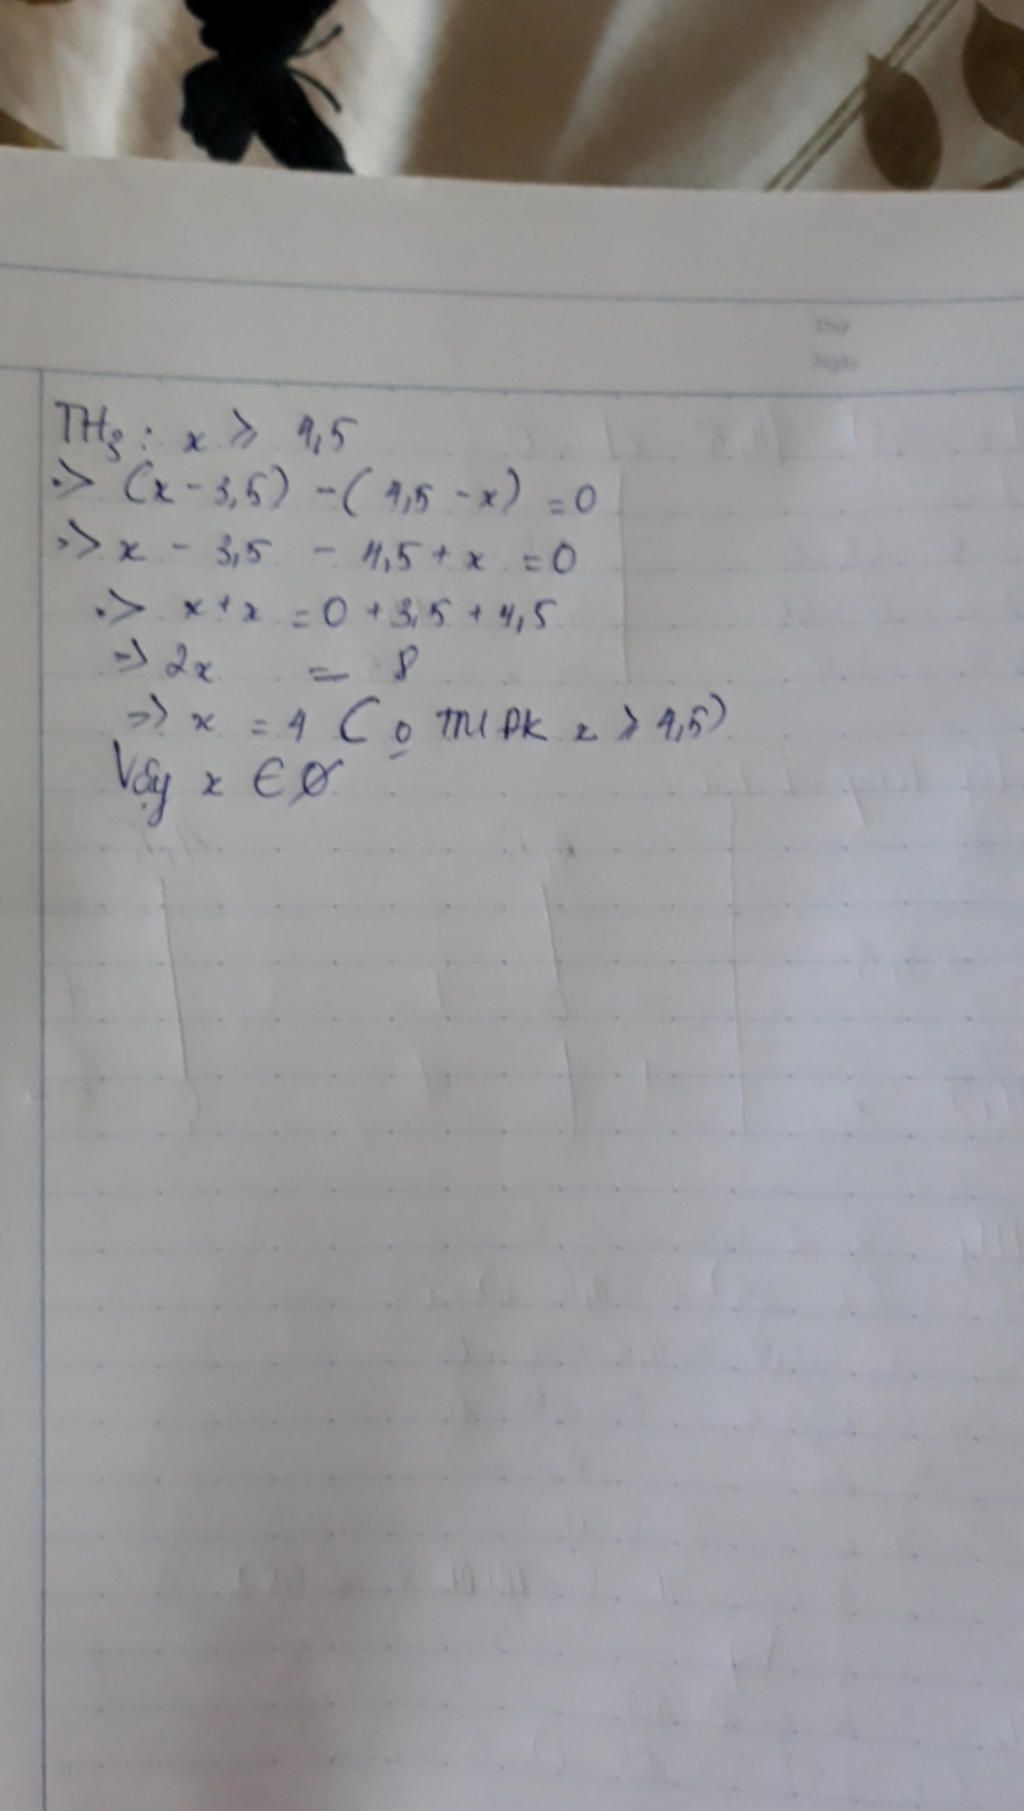 Thứ
Ngày
TH3: x ≥ 4,5
=> (x - 3,5) - (4,5 - x) = 0
=> x - 3,5 - 4,5 + x = 0
=> x + x = 0 + 3,5 + 4,5
=> 2x = 8
=> x = 4 (o TMĐK x ≥ 4,5)
Vậy x ∈ Ø